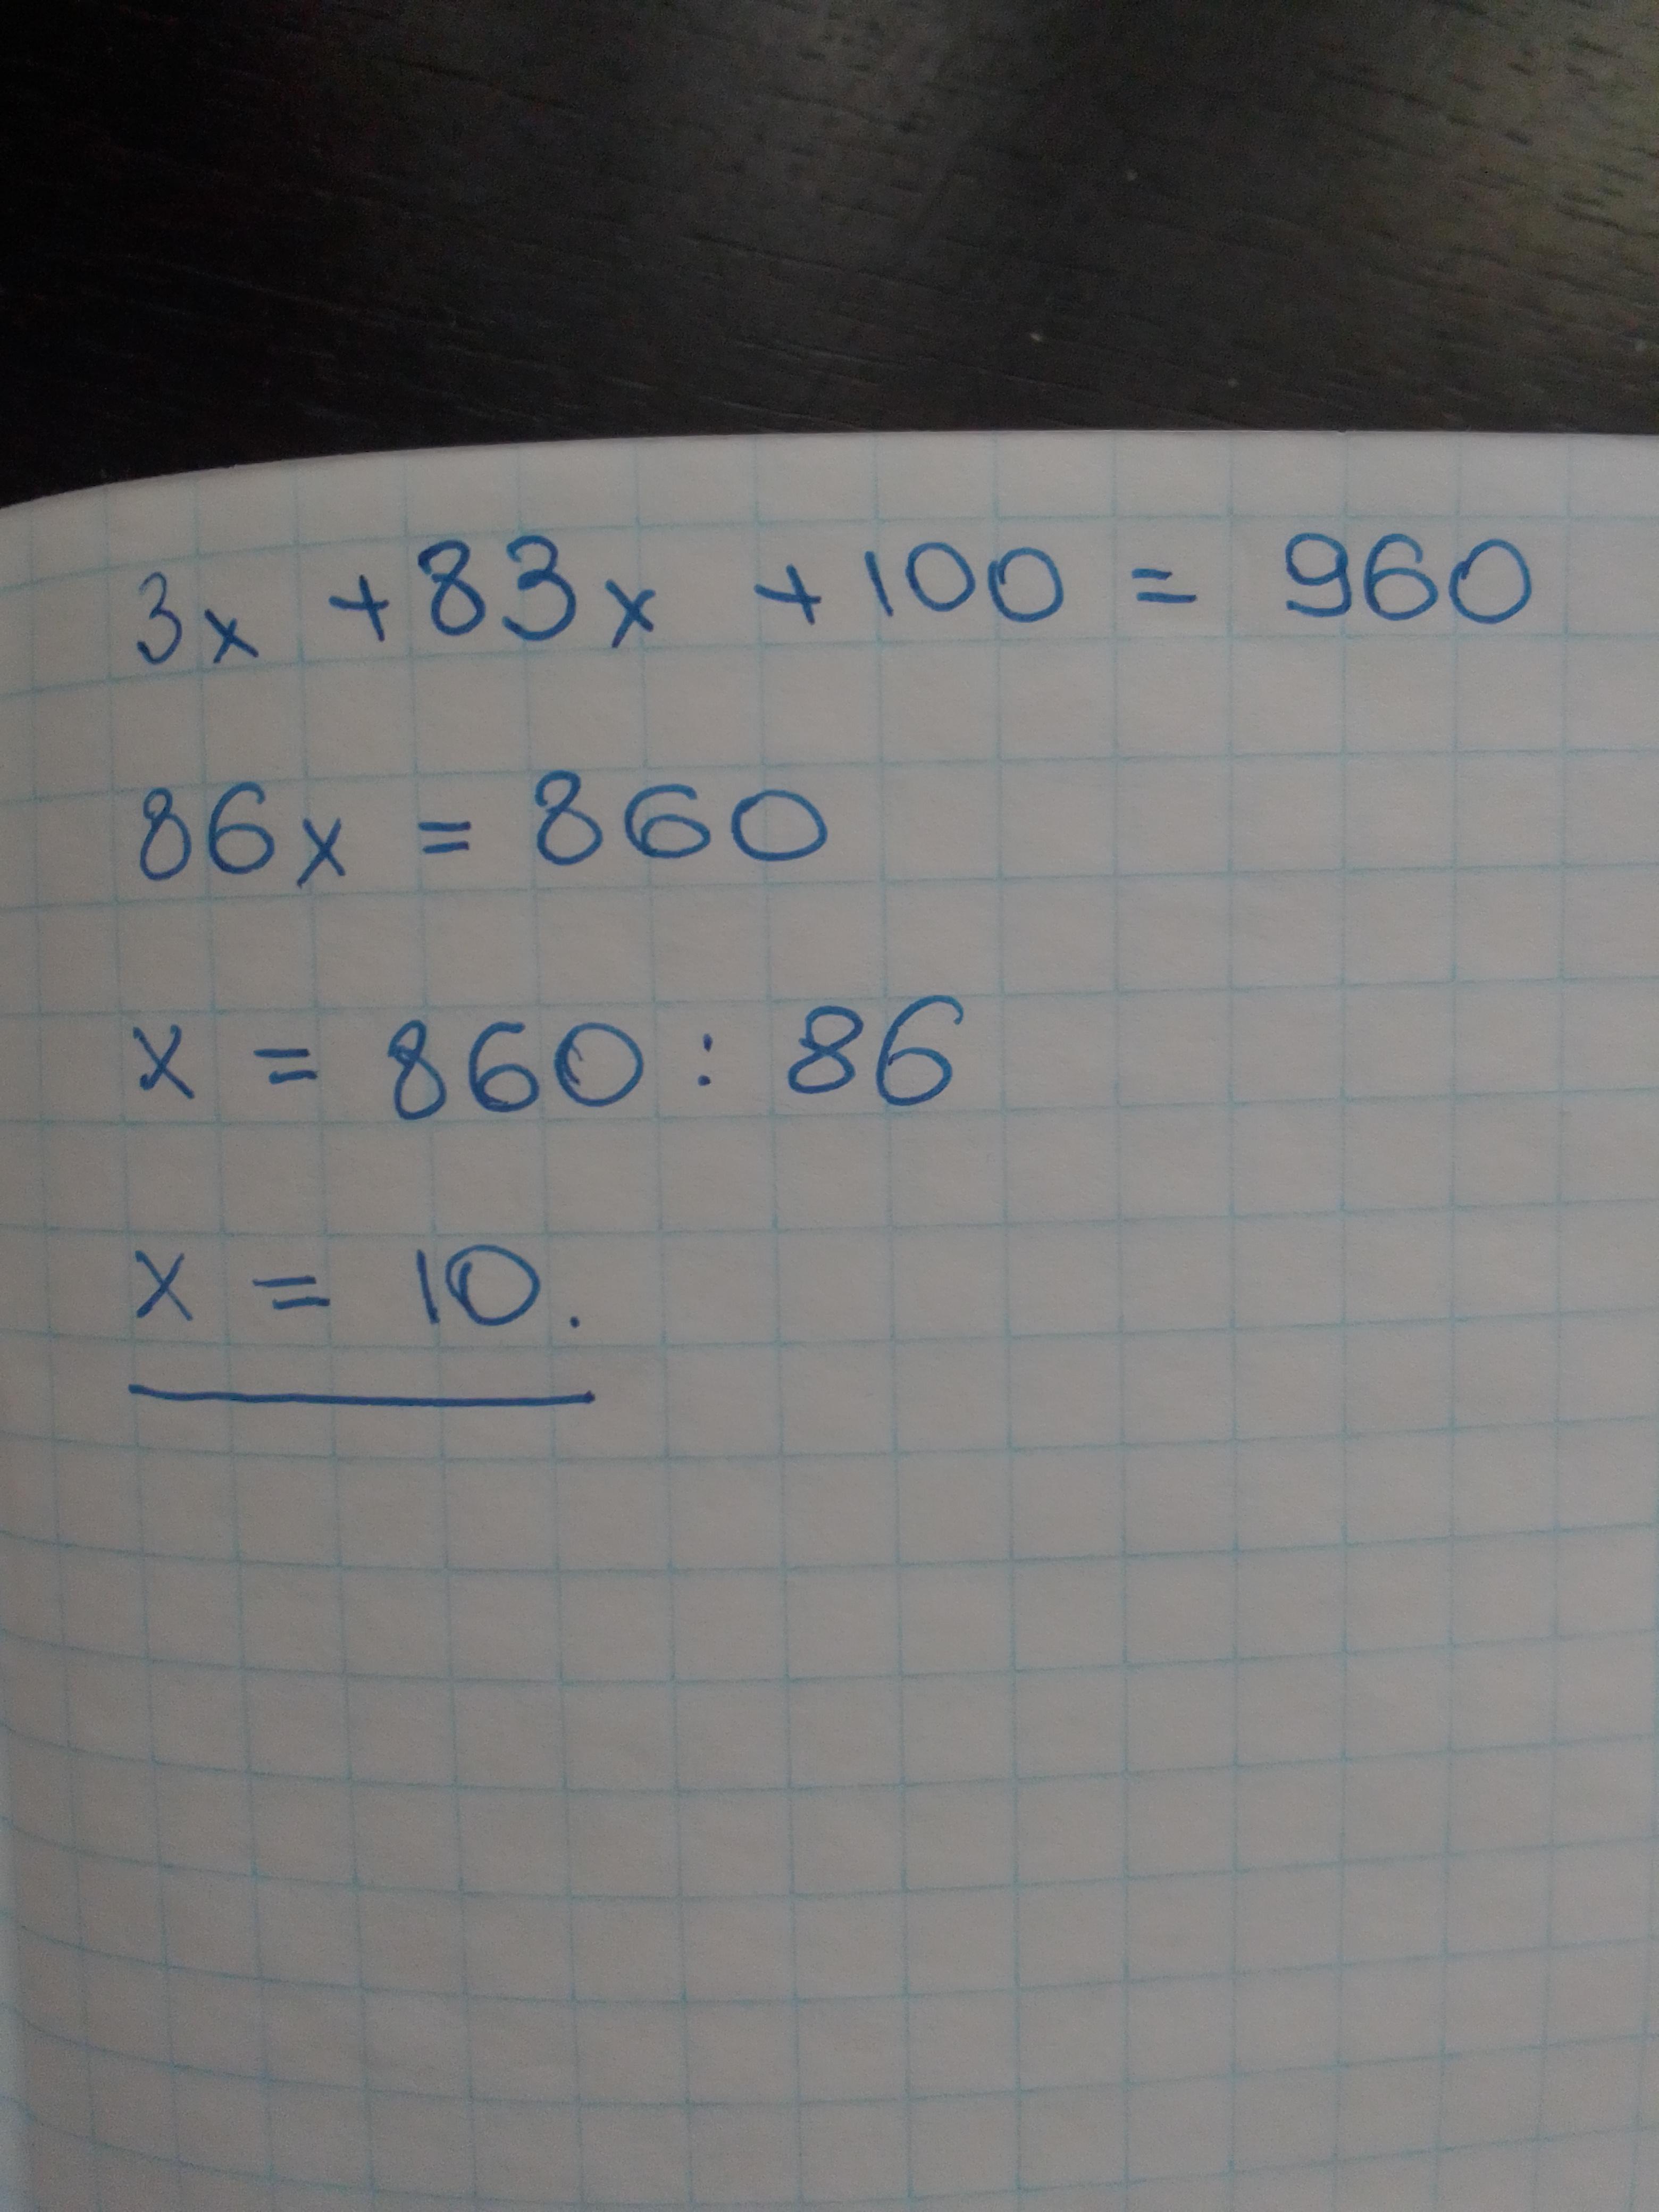 3x + 83x + 100 = 960
86x = 860
x = 860 : 86
x = 10.